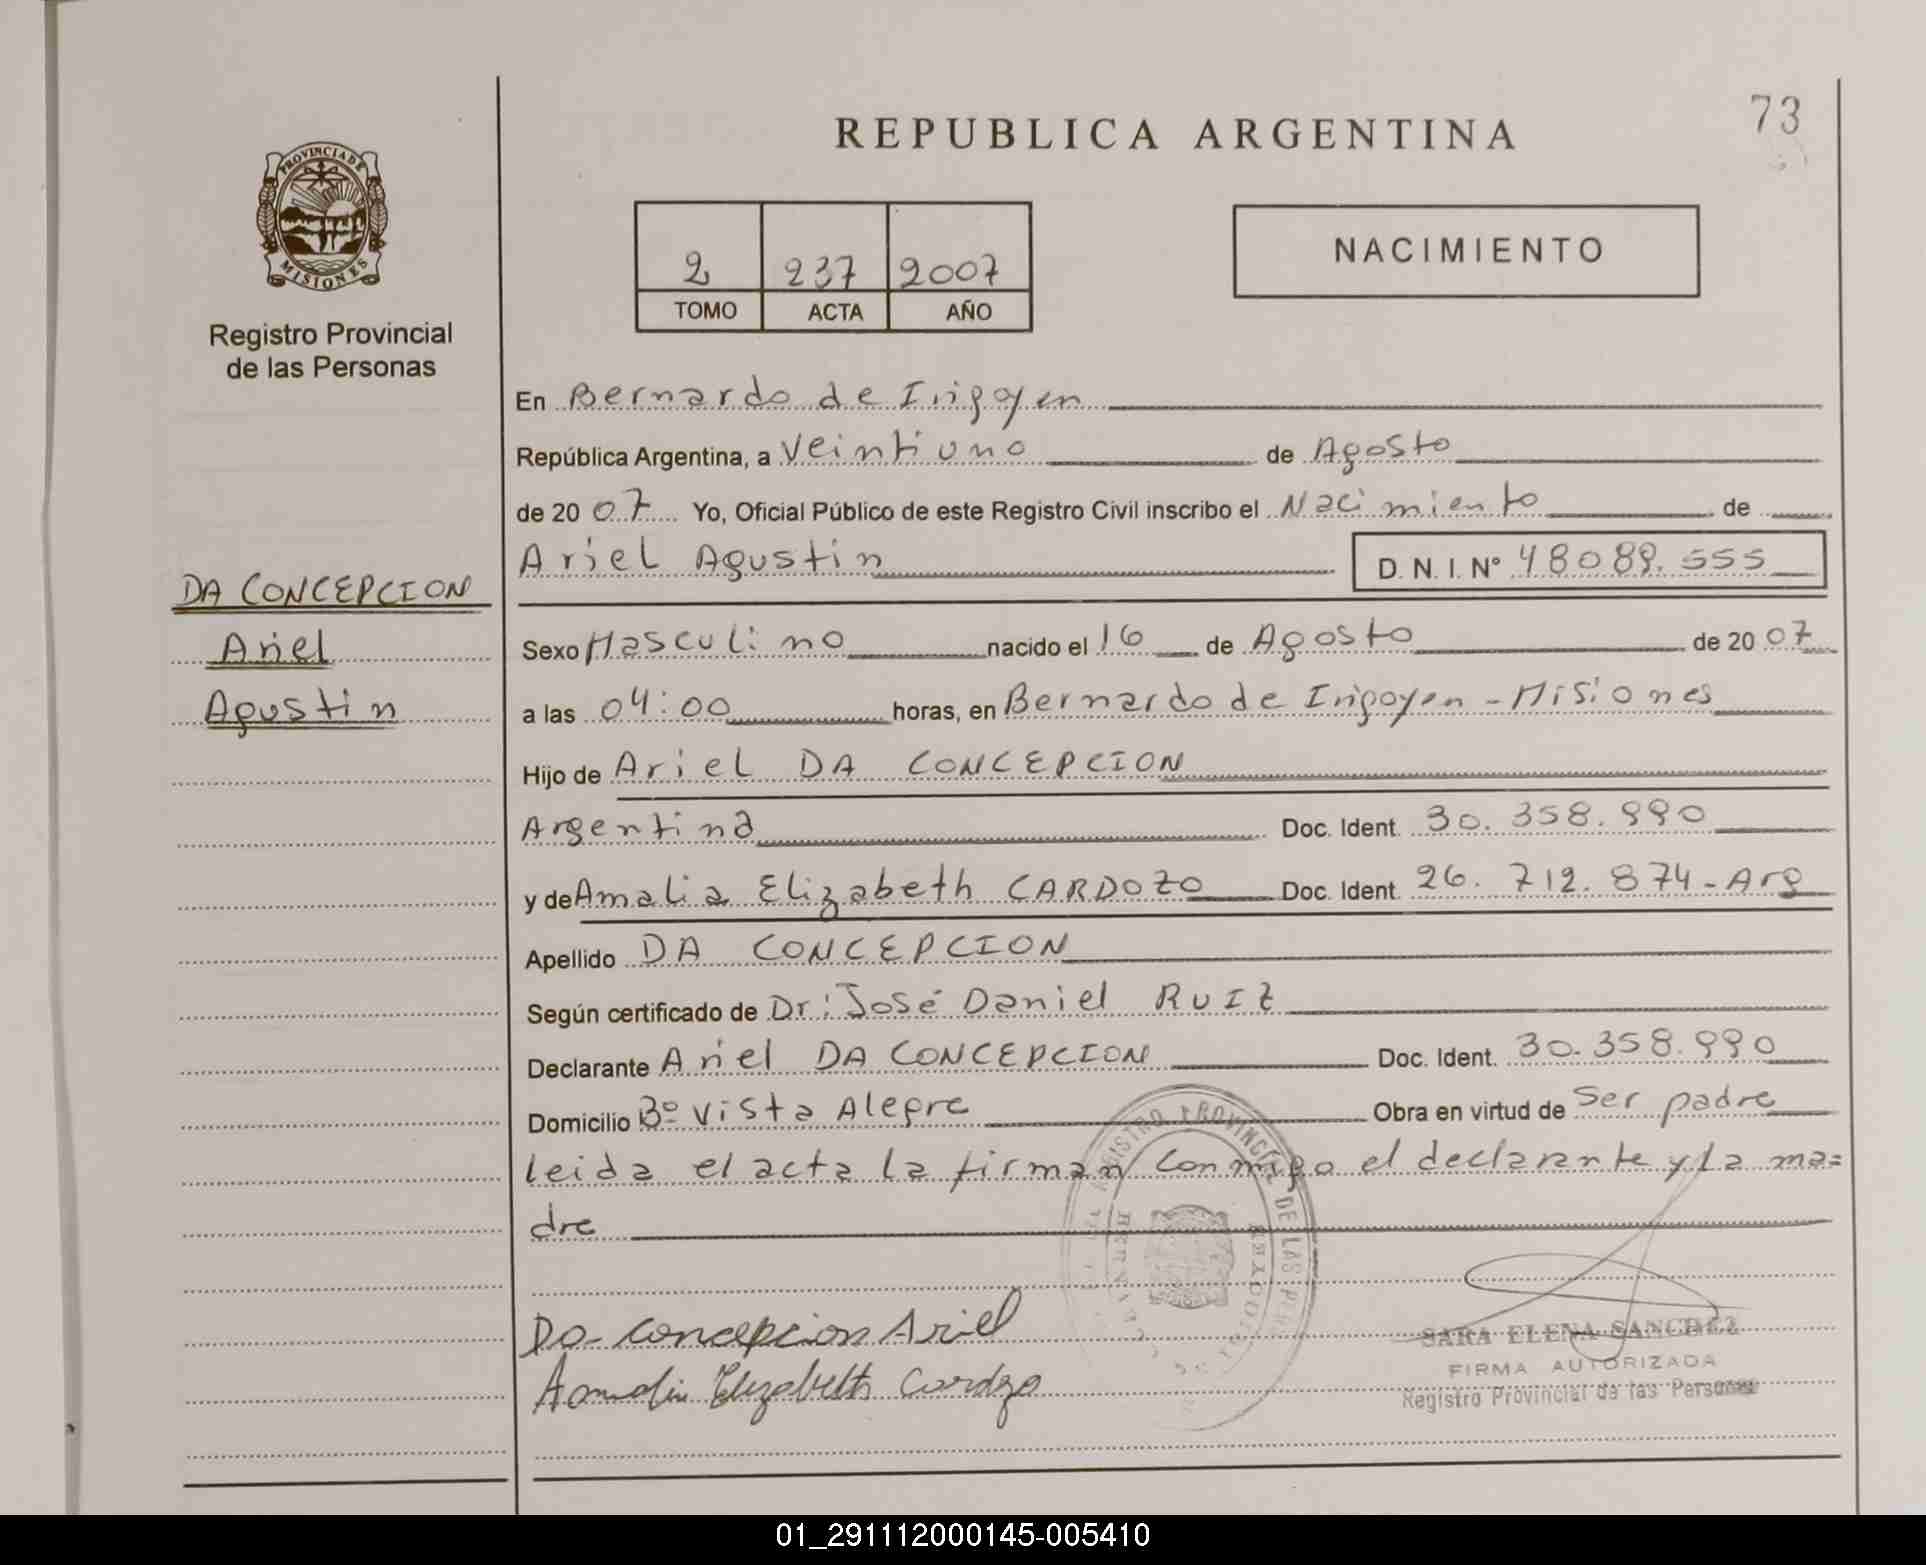 73
REPUBLICA ARGENTINA
PROVINCIA DE
MISIONES
Registro Provincial
de las Personas
2 237 2007
TOMO ACTA AÑO
NACIMIENTO
En Bernardo de Irigoyen
República Argentina, a Veintiuno de Agosto
de 2007 Yo, Oficial Público de este Registro Civil inscribo el Nacimiento de
Ariel Agustin D.N.I. Nº 48089.555
DA CONCEPCION
Ariel
Agustin
Sexo Masculino nacido el 16 de Agosto de 2007
a las 04:00 horas, en Bernardo de Irigoyen - Misiones
Hijo de Ariel DA CONCEPCION
Argentina Doc. Ident. 30.358.990
y de Amalia Elizabeth CARDOZO Doc. Ident. 26.712.874 - Arg
Apellido DA CONCEPCION
Según certificado de Dr: José Daniel RUIZ
Declarante Ariel DA CONCEPCION Doc. Ident. 30.358.990
Domicilio Bº Vista Alegre Obra en virtud de Ser padre
leida el acta la firman conmigo el declarante y la ma=
dre
REGISTRO PROVINCIAL DE LAS
Da Concepcion Ariel
Elizabeth Cardozo
SARA ELENA SANCHEZ
FIRMA AUTORIZADA
Registro Provincial de las Personas
01_291112000145-005410